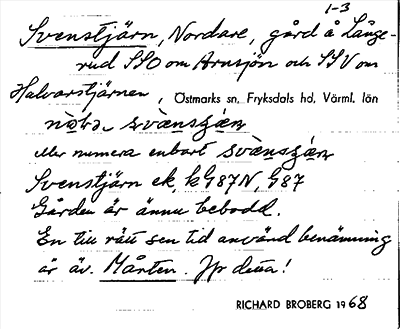 1-3
Svenstjärn, Nordare, gård å Långe-
rud SSO om Arnsjön och SSV om
Halvarstjärnen, Östmarks sn, Fryksdals hd, Värml. län
eller numera enbart
Svenstjärn ek, kG87N, G87
Gården är ännu bebodd.
En till rätt sen tid använd benämning
är äv. Mårten. Jfr detta!
RICHARD BROBERG 1968